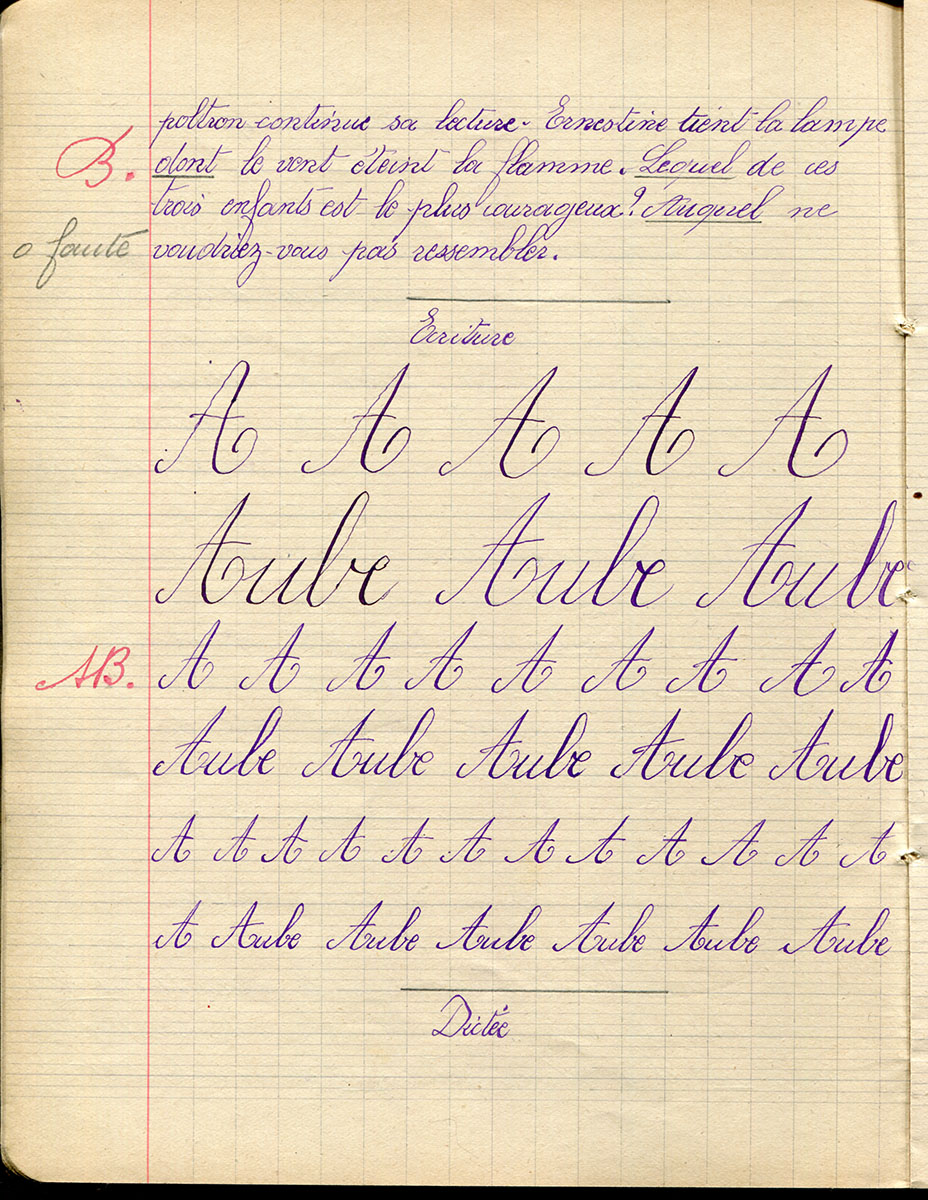 poltron continue sa lecture - Ernestine tient la lampe
B. dont le vent éteint la flamme. Lequel de ces
trois enfants est le plus courageux? Auquel ne
0 faute voudriez-vous pas ressembler.
Ecriture
A A A A A
Aube Aube Aube
AB. A A A A A A A A A
Aube Aube Aube Aube Aube
A A A A A A A A A A A A
A Aube Aube Aube Aube Aube Aube
Dictée